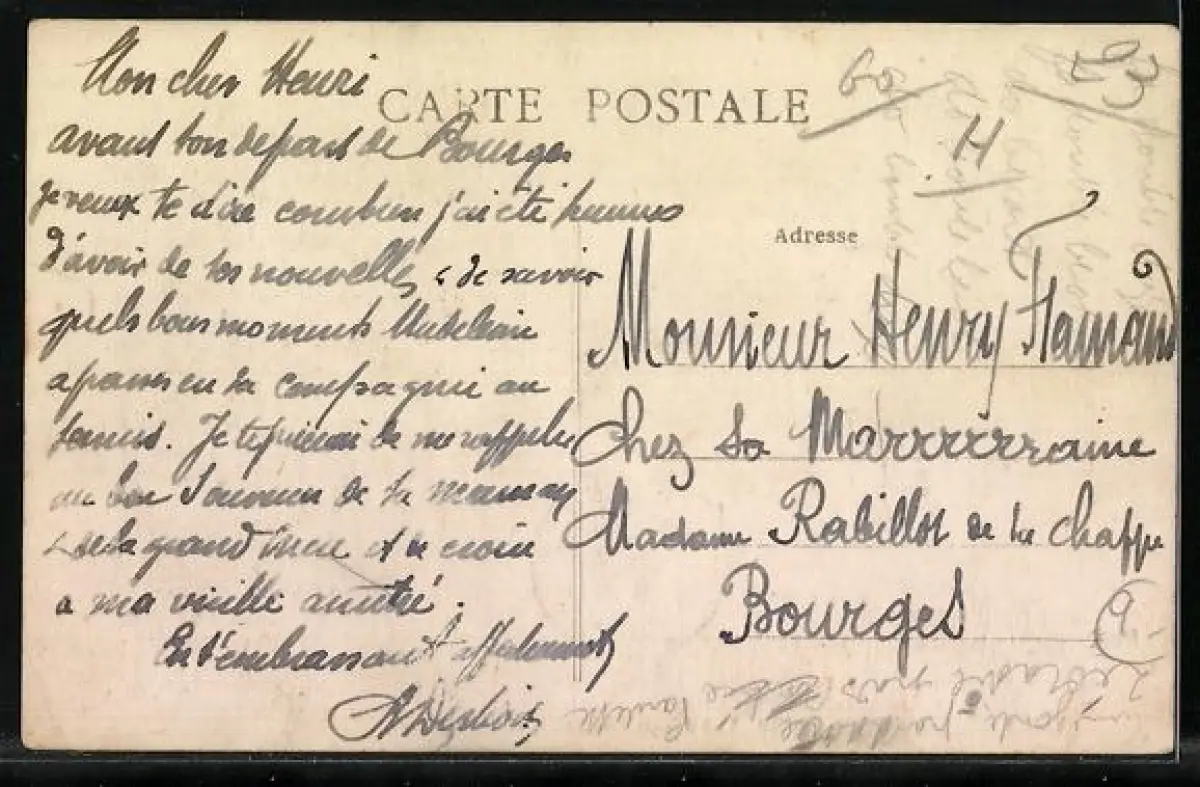 Mon cher Henri
avant ton depart de Bourges
je veux te dire combien j'ai été heureux
d'avoir de tes nouvelles & de savoir
quels bons moments Madeleine
a passés en ta compagnie au
tennis. Je te prierai de me rappeler
au bon souvenir de ta maman
& de ta grand'mère et de croire
a ma vieille amitié.
En t'embrassant affectueusement
CARTE POSTALE
Adresse
Monsieur Henry
Chez sa Marrrrrrraine
Madame Rabillot de la Chappe
Bourges
60
93
H